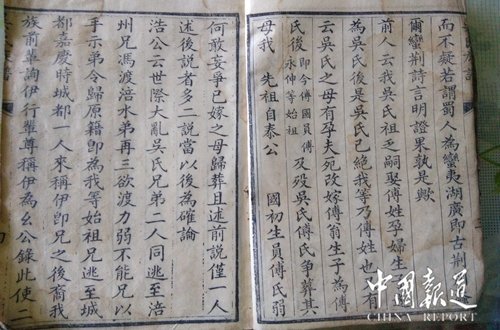 而不疑若謂蜀人為蠻夷湖廣即古荆
爾蠻荆詩言明證果孰是歟
前人云我吳氏祖乏嗣娶傅姓孕婦生
為吳氏後是吳氏已絶我等乃傅姓也有
云吳氏之母有孕夫死改嫁傅翁生子為傅
氏後即今傅國員傅永伸等始祖及殁吳氏傅氏爭葬其
母我 先祖自泰公 國初生員傅氏弱
何敢妄爭已嫁之母歸葬且述前說僅一人
述後說者多二說當以後為確論
浩公云世際大亂吳氏兄弟二人同逃至涪
州兄馮渡涪水弟再三欲渡力弱不能兄以
手示弟令歸原籍即為我等始祖兄逃至城
都嘉慶時城都一人來稱伊即兄之後裔我
族前單詢伊行輩尊稱伊為幺公錄此使二
中國報道
CHINA REPORT